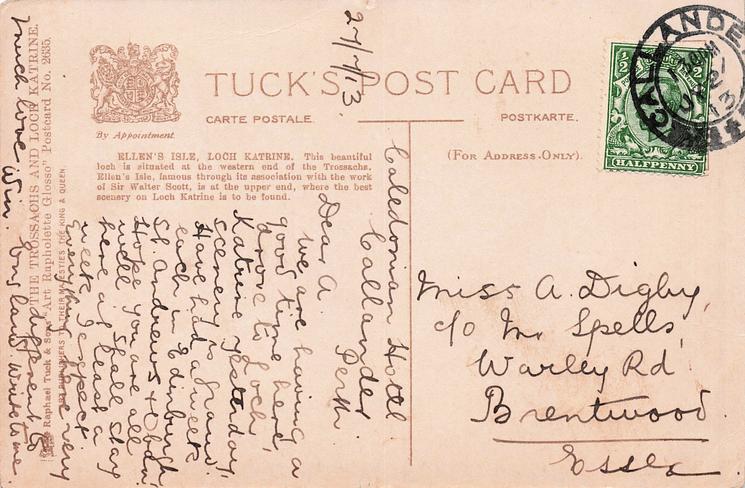 TUCK'S POST CARD
CARTE POSTALE.
POSTKARTE.
By Appointment.
(For Address Only).
ELLEN'S ISLE, LOCH KATRINE. This beautiful
loch is situated at the western end of the Trossachs.
Ellen's Isle, famous through its association with the work
of Sir Walter Scott, is at the upper end, where the best
scenery on Loch Katrine is to be found.
THE TROSSACHS AND LOCH KATRINE.
Raphael Tuck & Sons' "Art Rapholette Glosso" Postcard No. 2635.
ART PUBLISHERS TO THEIR MAJESTIES THE KING & QUEEN
27/7/13.
Caledonian Hotel
Callander
Perth.
Dear A.
We are having a
good time here,
drove to Loch
Katrine yesterday,
scenery grand.
Have had a week
each in Edinburgh
St. Andrews &
Hope you are all
well. Shall stay
here at least a
week I expect
Everything here very
different to
England. Write to me
much love Win.
Miss A. Digby,
c/o Mr Spells,
Warley Rd
Brentwood.
Essex
CALLANDER
JY 27
13
1/2
1/2
HALFPENNY